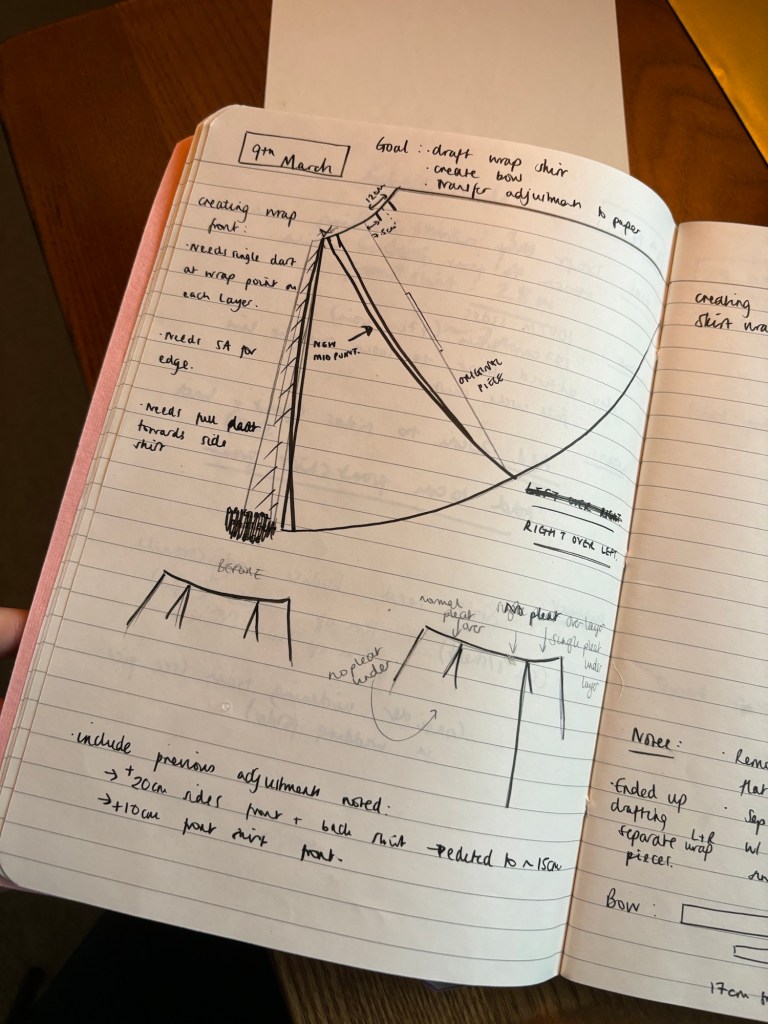 9th March
Goal : · draft wrap skirt
· create bow
· transfer adjustment to paper
creating wrap
front:
· Needs single dart
at wrap point on
each layer.
· Needs SA for
edge.
· Needs full dart
towards side
skirt
12cm
NEW
MID POINT.
ORIGINAL
PIECE
LEFT OVER RIGHT
RIGHT OVER LEFT.
BEFORE
normal
pleat
over
no pleat
under
pleat over layer
single pleat
under
layer
· include previous adjustments noted:
→ + 20cm sides front + back skirt → edited to ~15cm
→ +10cm front skirt front.
creating
skirt wra
Notes:
· Ended up
drafting L+R
separate wrap
pieces.
· Remo
flat
· Sep
w/
Bow :
17cm